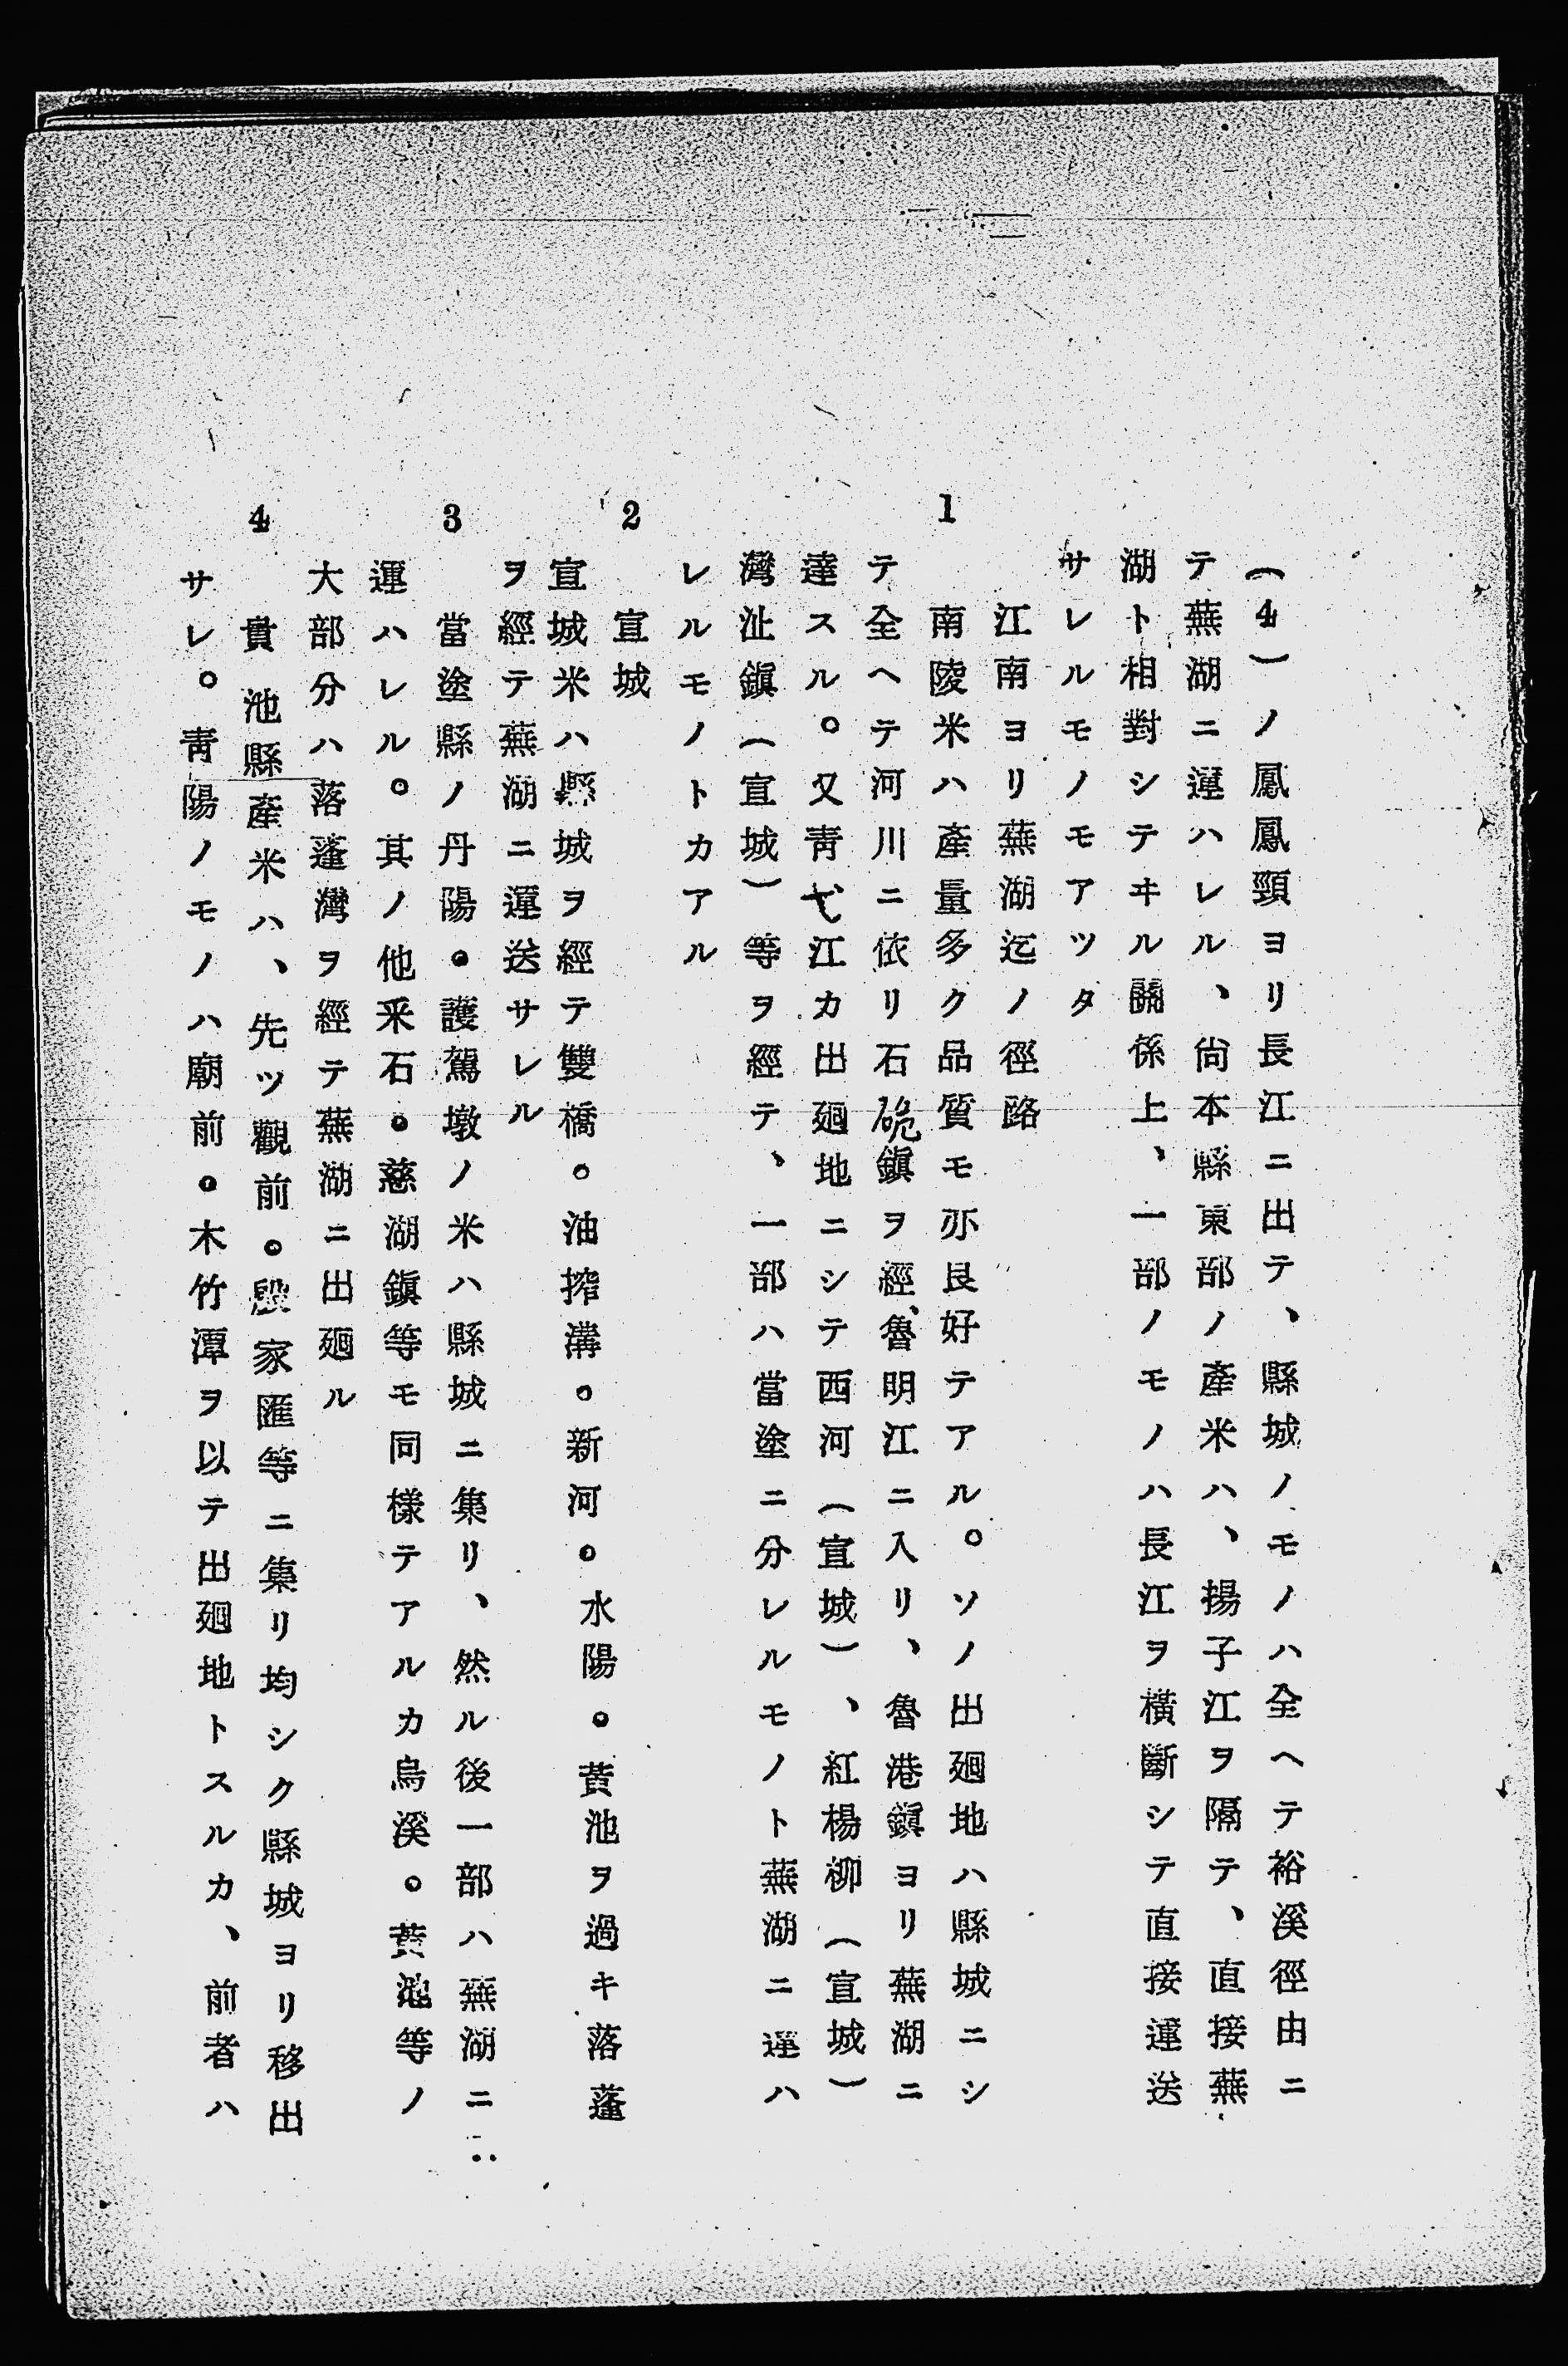 (4)ノ鳳鳳頸ヨリ長江ニ出テ、縣城ノモノハ全ヘテ裕溪徑由ニ
テ蕪湖ニ運ハレル、尙本縣東部ノ產米ハ、揚子江ヲ隔テ、直接蕪
湖ト相對シテヰル關係上、一部ノモノハ長江ヲ橫斷シテ直接運送
サレルモノモアツタ
江南ヨリ蕪湖迄ノ徑路
1 南陵米ハ產量多ク品質モ亦良好テアル。ソノ出廻地ハ縣城ニシ
テ全ヘテ河川ニ依リ石硊鎭ヲ經、魯明江ニ入リ、魯港鎭ヨリ蕪湖ニ
達スル。又靑弋江カ出廻地ニシテ西河(宣城)、紅楊柳(宣城)
灣沚鎭(宣城)等ヲ經テ、一部ハ當塗ニ分レルモノト蕪湖ニ運ハ
レルモノトカアル
2 宣城
宣城米ハ縣城ヲ經テ雙橋。油搾溝。新河。水陽。黃池ヲ過キ落蓬
ヲ經テ蕪湖ニ運送サレル
3 當塗縣ノ丹陽。護駕墩ノ米ハ縣城ニ集リ、然ル後一部ハ蕪湖ニ
運ハレル。其ノ他釆石。慈湖鎭等モ同樣テアルカ烏溪。黃池等ノ
大部分ハ落蓬灣ヲ經テ蕪湖ニ出廻ル
4 貴池縣產米ハ、先ツ觀前。殷家匯等ニ集リ均シク縣城ヨリ移出
サレ。靑陽ノモノハ廟前。木竹潭ヲ以テ出廻地トスルカ、前者ハ